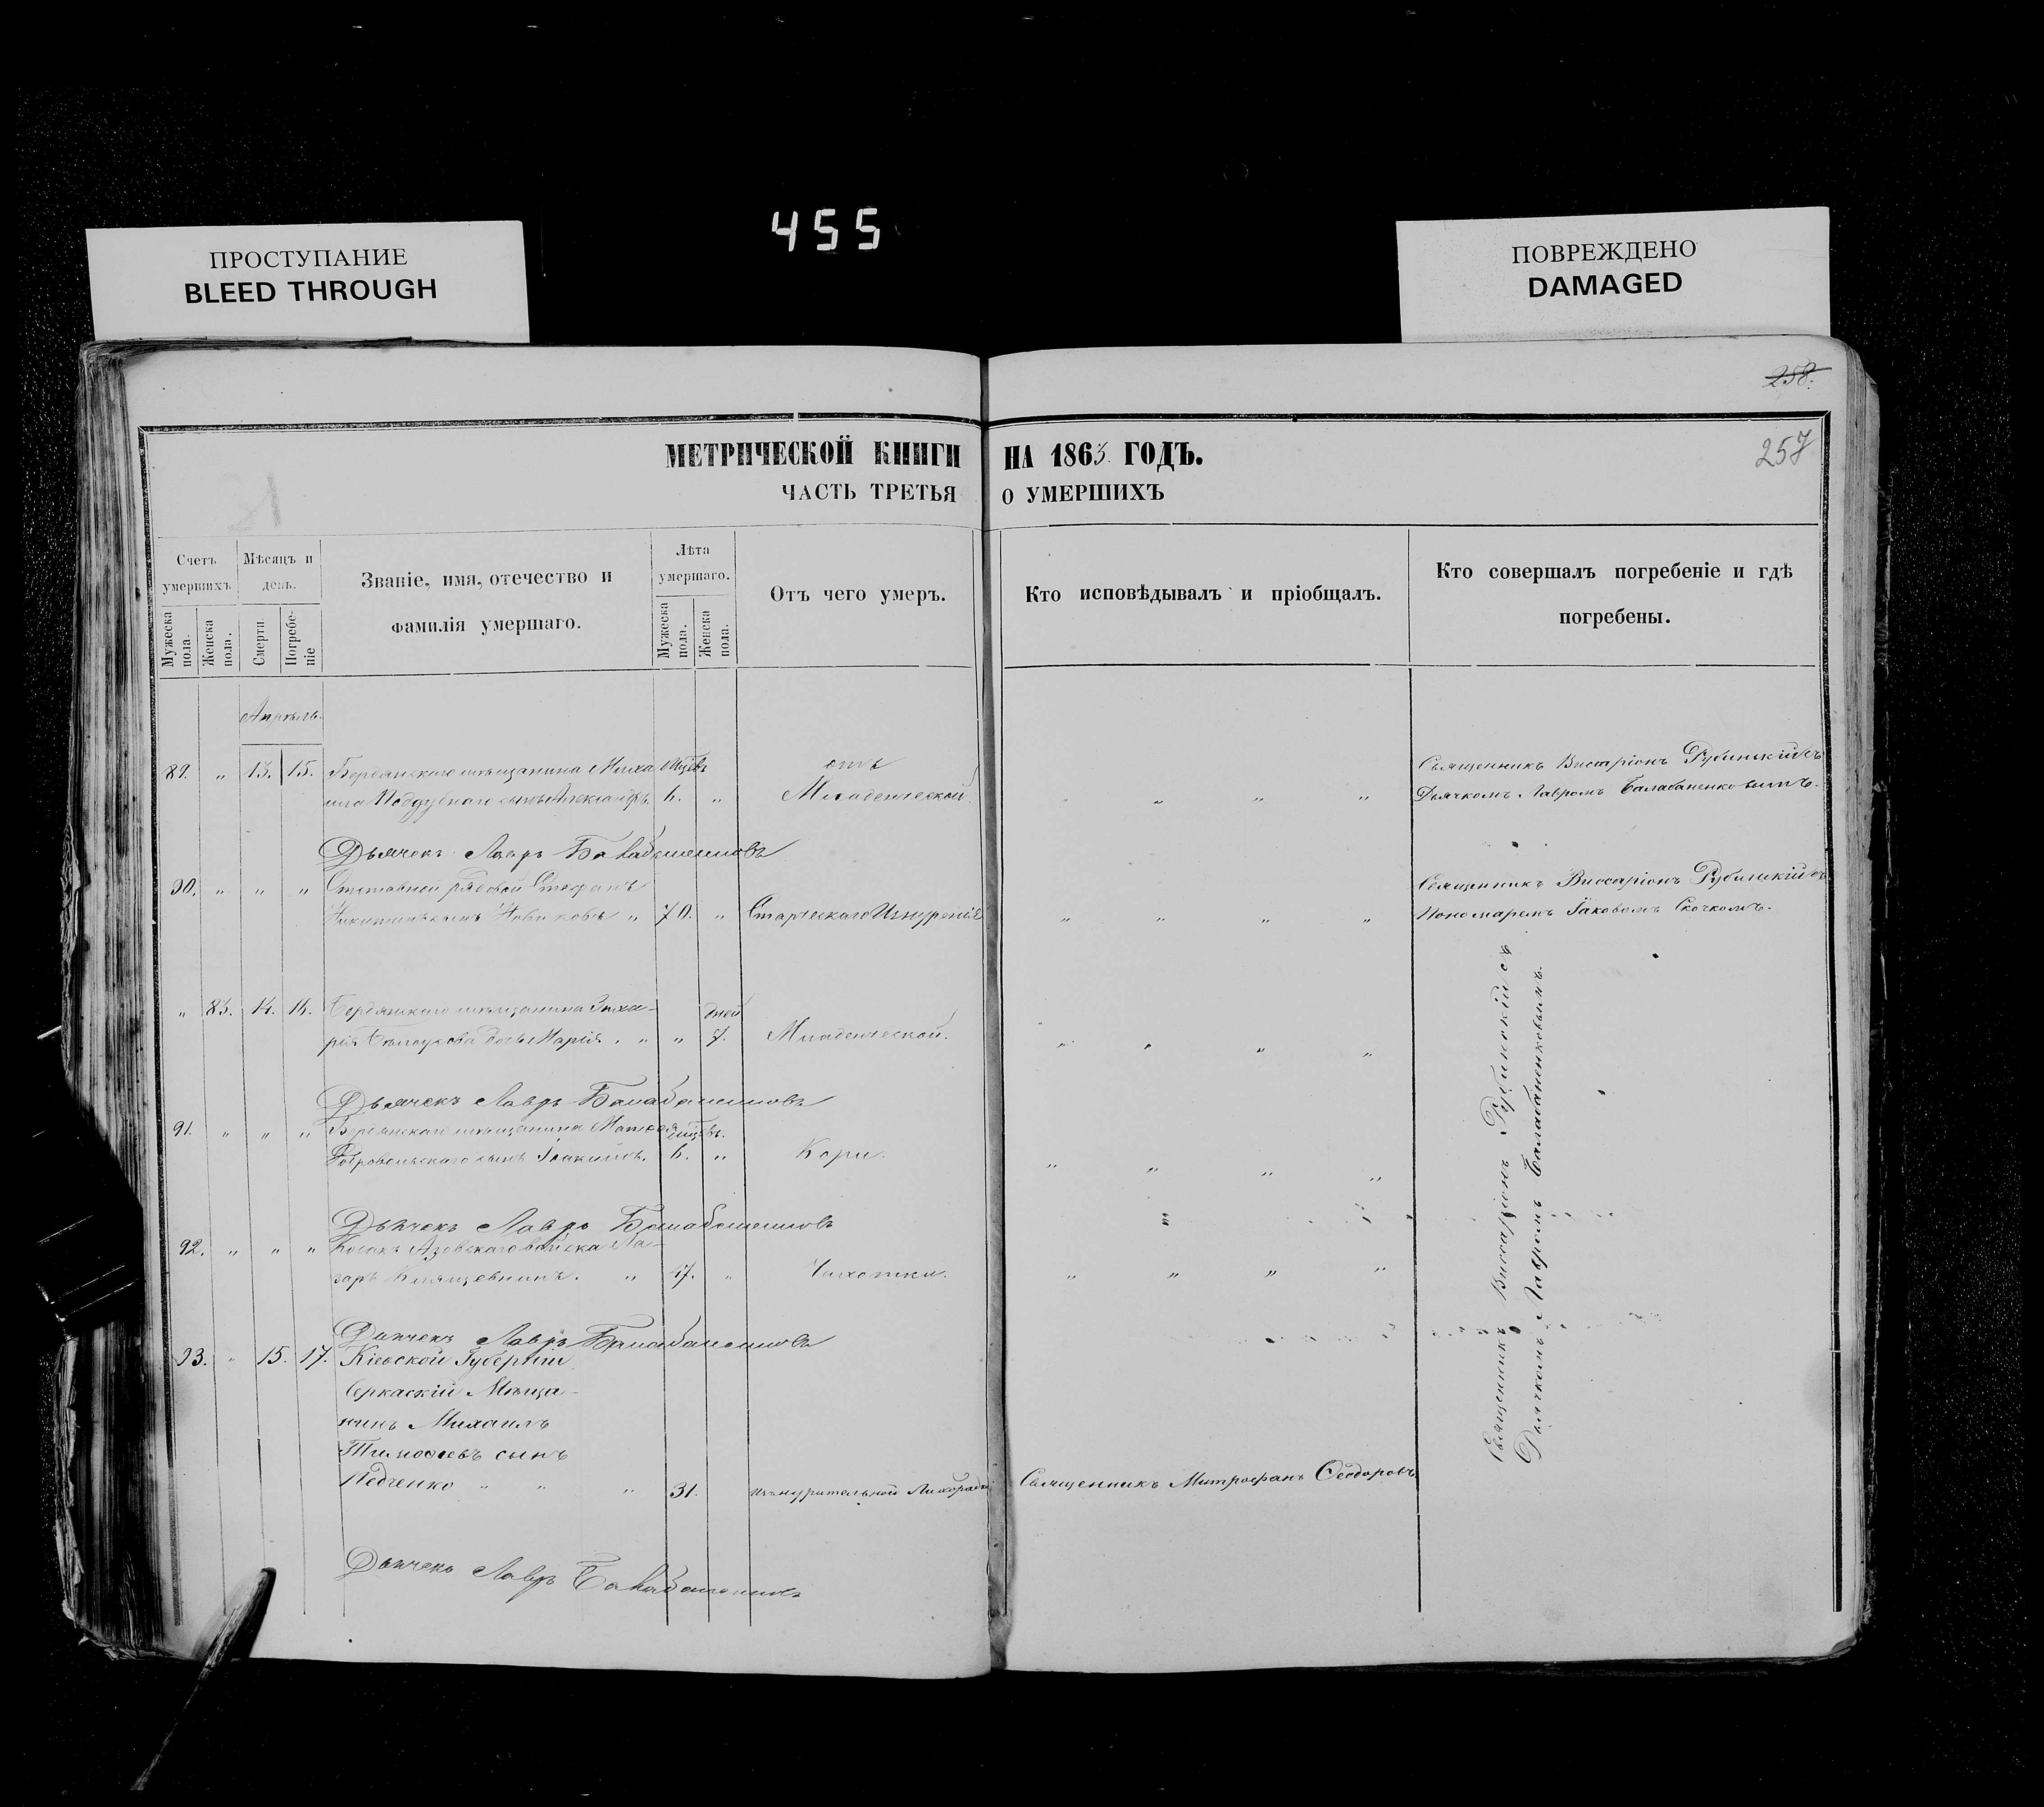 455
ПРОСТУПАНИЕ
BLEED THROUGH
ПОВРЕЖДЕНО
DAMAGED
258.
257
МЕТРИЧЕСКОЙ КНИГИ НА 1863 ГОДЪ.
ЧАСТЬ ТРЕТЬЯ О УМЕРШИХЪ
Счетъ умершихъ
Мужеска пола.
Женска пола.
Мѣсяцъ и день.
Смерти.
Погребеніе
Званіе, имя, отечество и
фамилія умершаго.
Лѣта умершаго.
Мужеска пола.
Женска пола.
Отъ чего умеръ.
Кто исповѣдывалъ и пріобщалъ.
Кто совершалъ погребеніе и гдѣ
погребены.
Апрѣль.
89. " 13. 15. Бердянскаго мѣщанина Миха мѣсѣвъ отъ Священникъ Виссаріонъ Рубинскій съ
ила Поддубнаго сынъ Александръ. 6. " Младенческой. " " " " Дьячкомъ Лавромъ Балабаненковымъ.
Дьячекъ Лавръ Балабаненковъ
90. " " " Отставной рядовой Стефанъ Священникъ Виссаріонъ Рубинскій съ
Никитинъ сынъ Новиковъ " 70. " Старческаго Изнуренія " " " " Пономаремъ Іаковомъ Скочкомъ.
" 83. 14. 14. Бердянскаго мѣщанина Заха- дней
рія дочь Марія. " " 7. Младенческой. " " " "
Дьячекъ Лавръ Балабаненковъ
91. " " " Бердянскаго мѣщанина Матѳея
Добровольскаго сынъ Іоакимъ. 6. " Кори. " " " "
Дьячекъ Лавръ Балабаненковъ
92. " " " Козакъ Азовскаго войска Ла-
заръ " 47. " Чахотки. " " " "
Дьячекъ Лавръ Балабаненковъ
93. " 15. 17. Кіевской Губерніи
Черкаскій Мѣща-
нинъ Михаилъ
Тимоѳеевъ сынъ
Педченко " " " 31. Изнурительной Лихорадки Священникъ Митрофанъ Ѳеодоровъ
Священникъ Виссаріонъ Рубинскій съ
Дьячкомъ Лавромъ Балабаненковымъ.
Дьячекъ Лавръ Балабаненковъ